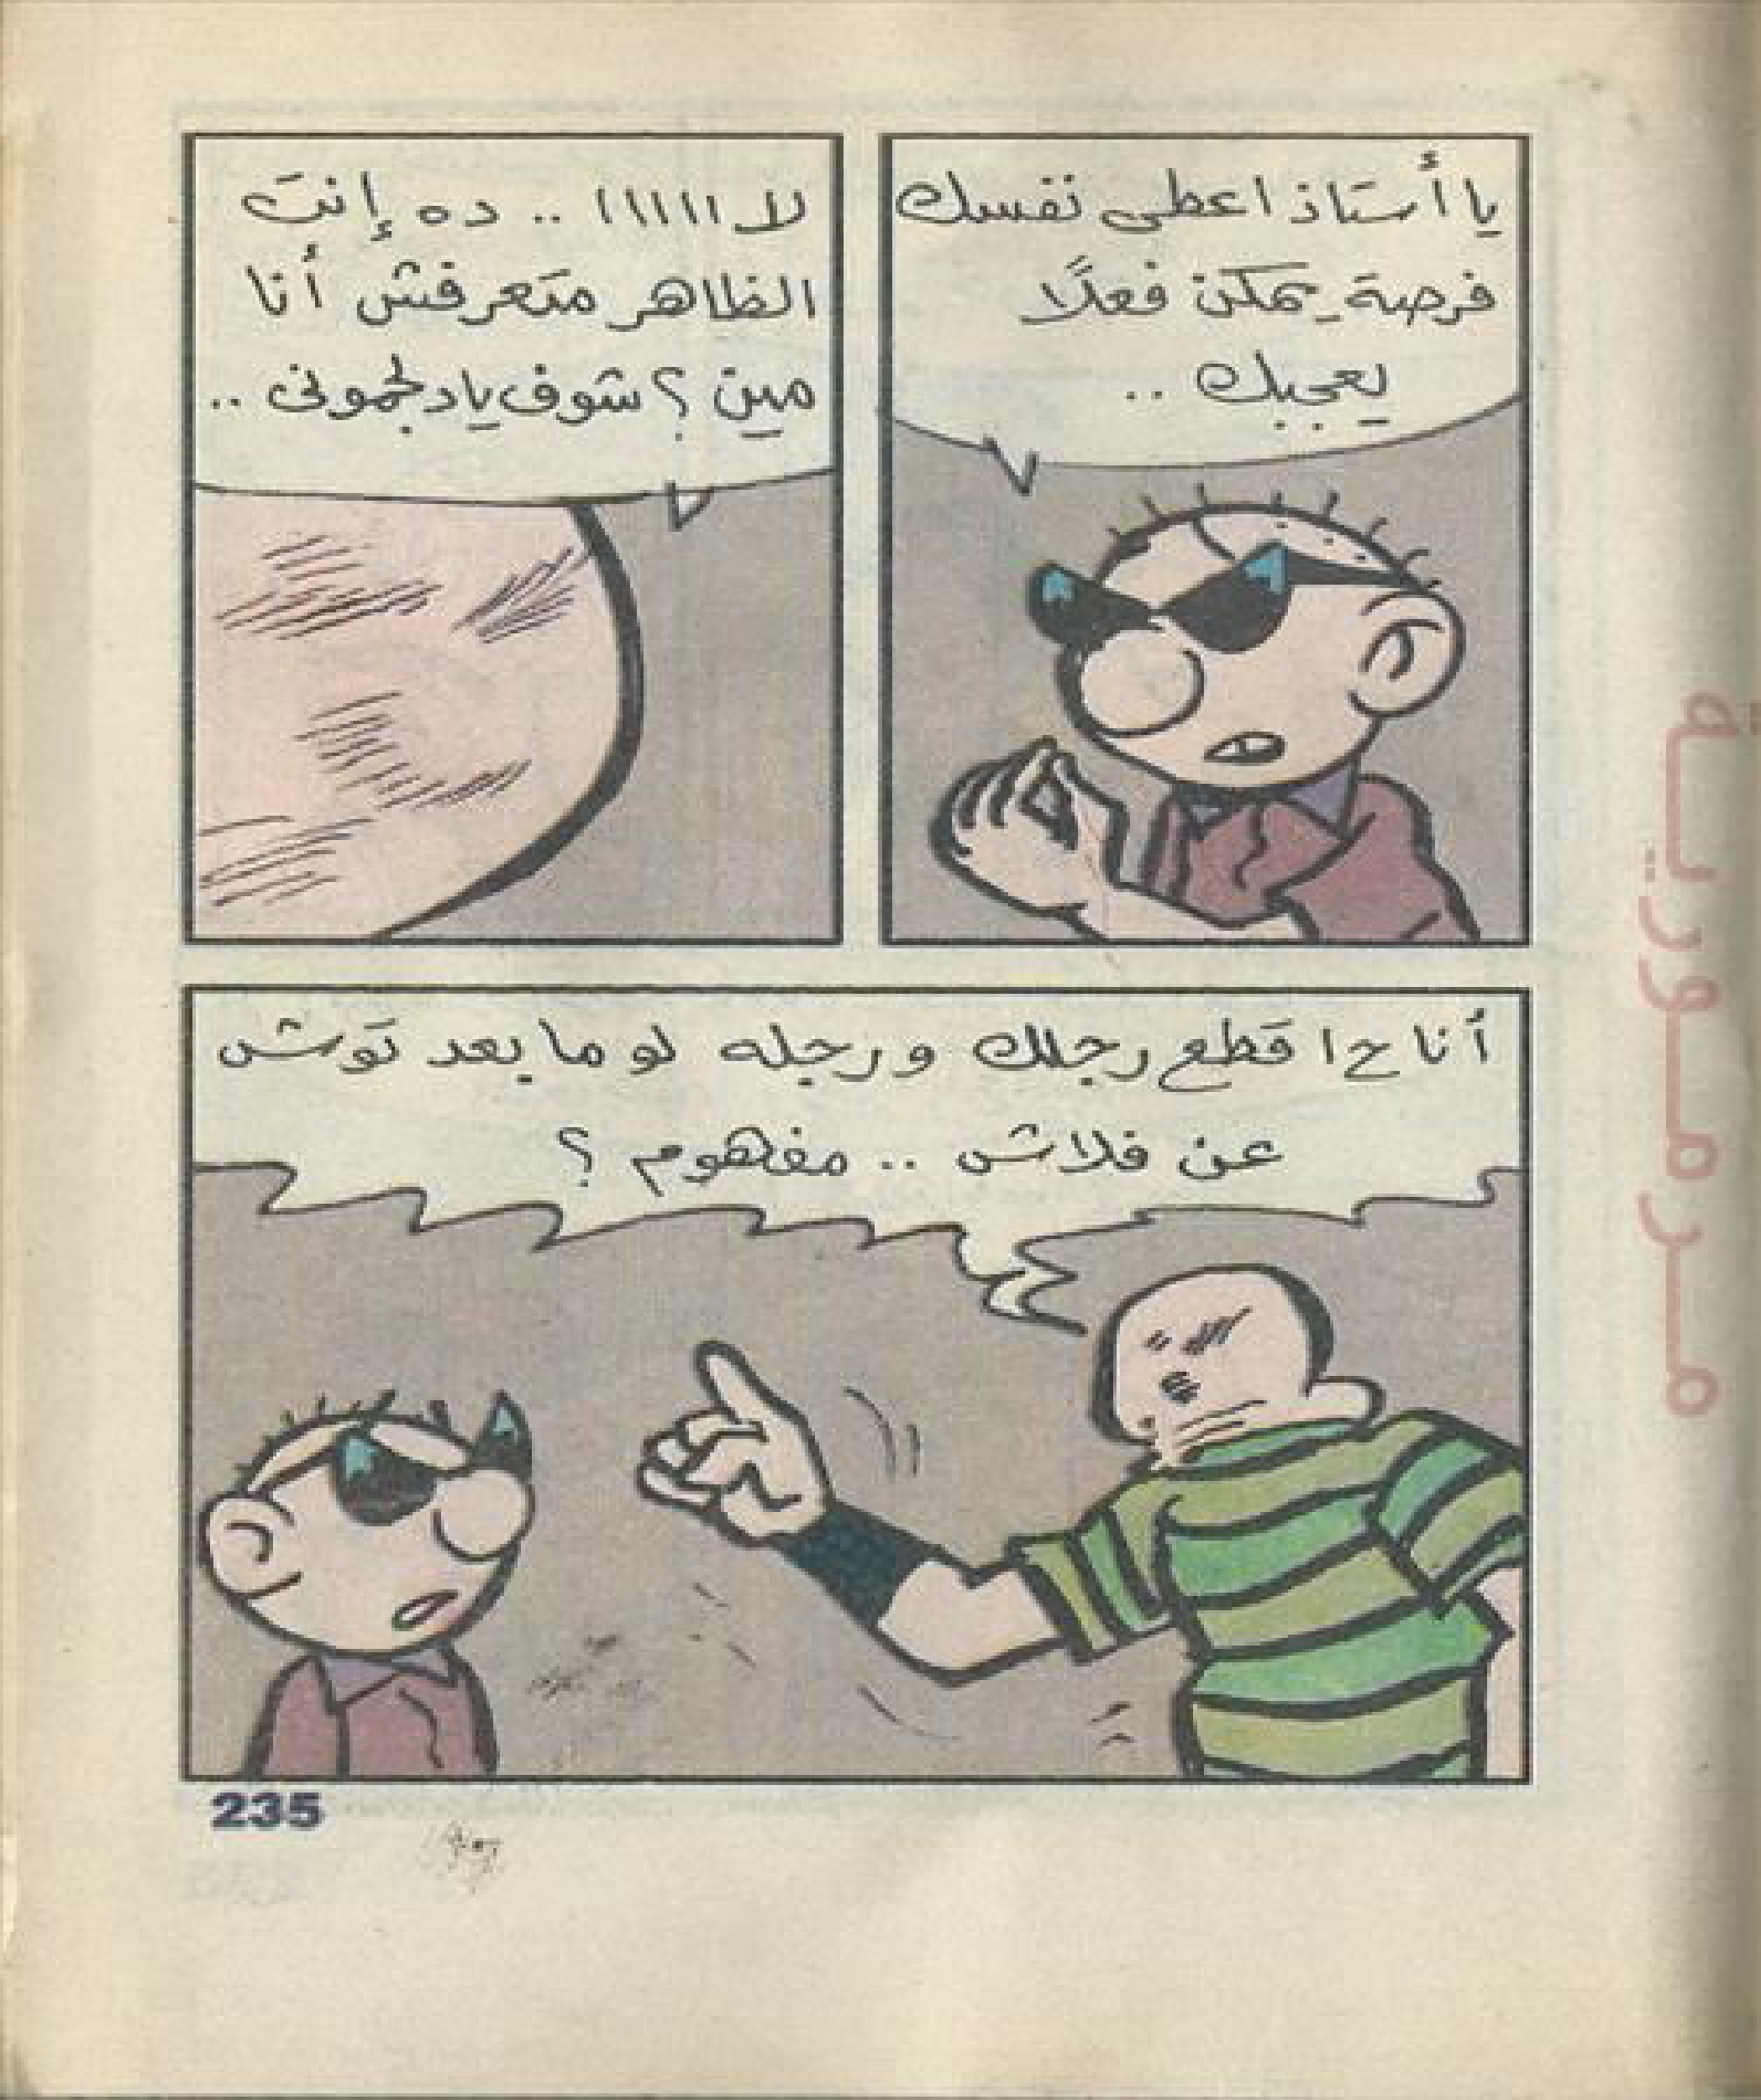 يا أستاذ اعطى نفسك
فرصة يمكن فعلًا
يعجبك ..
لا ااااا .. ده إنت
الظاهر متعرفش أنا
مين ؟ شوف يا دلجمونى ..
أنا ح اقطع رجلك ورجله لو ما بعدتوش
عن فلاش .. مفهوم ؟
235